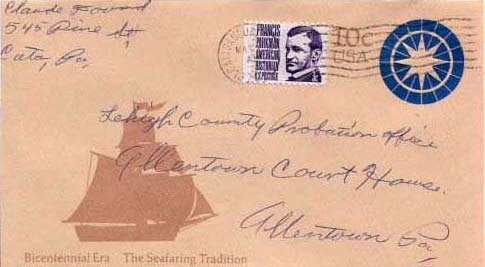 Claude
545 Pine St
Cata, Pa,
FRANCIS
PARKMAN
AMERICAN
HISTORIAN
10c
USA
Lehigh County Probation office
Allentown Court House.
Allentown Pa,
Bicentennial Era The Seafaring Tradition